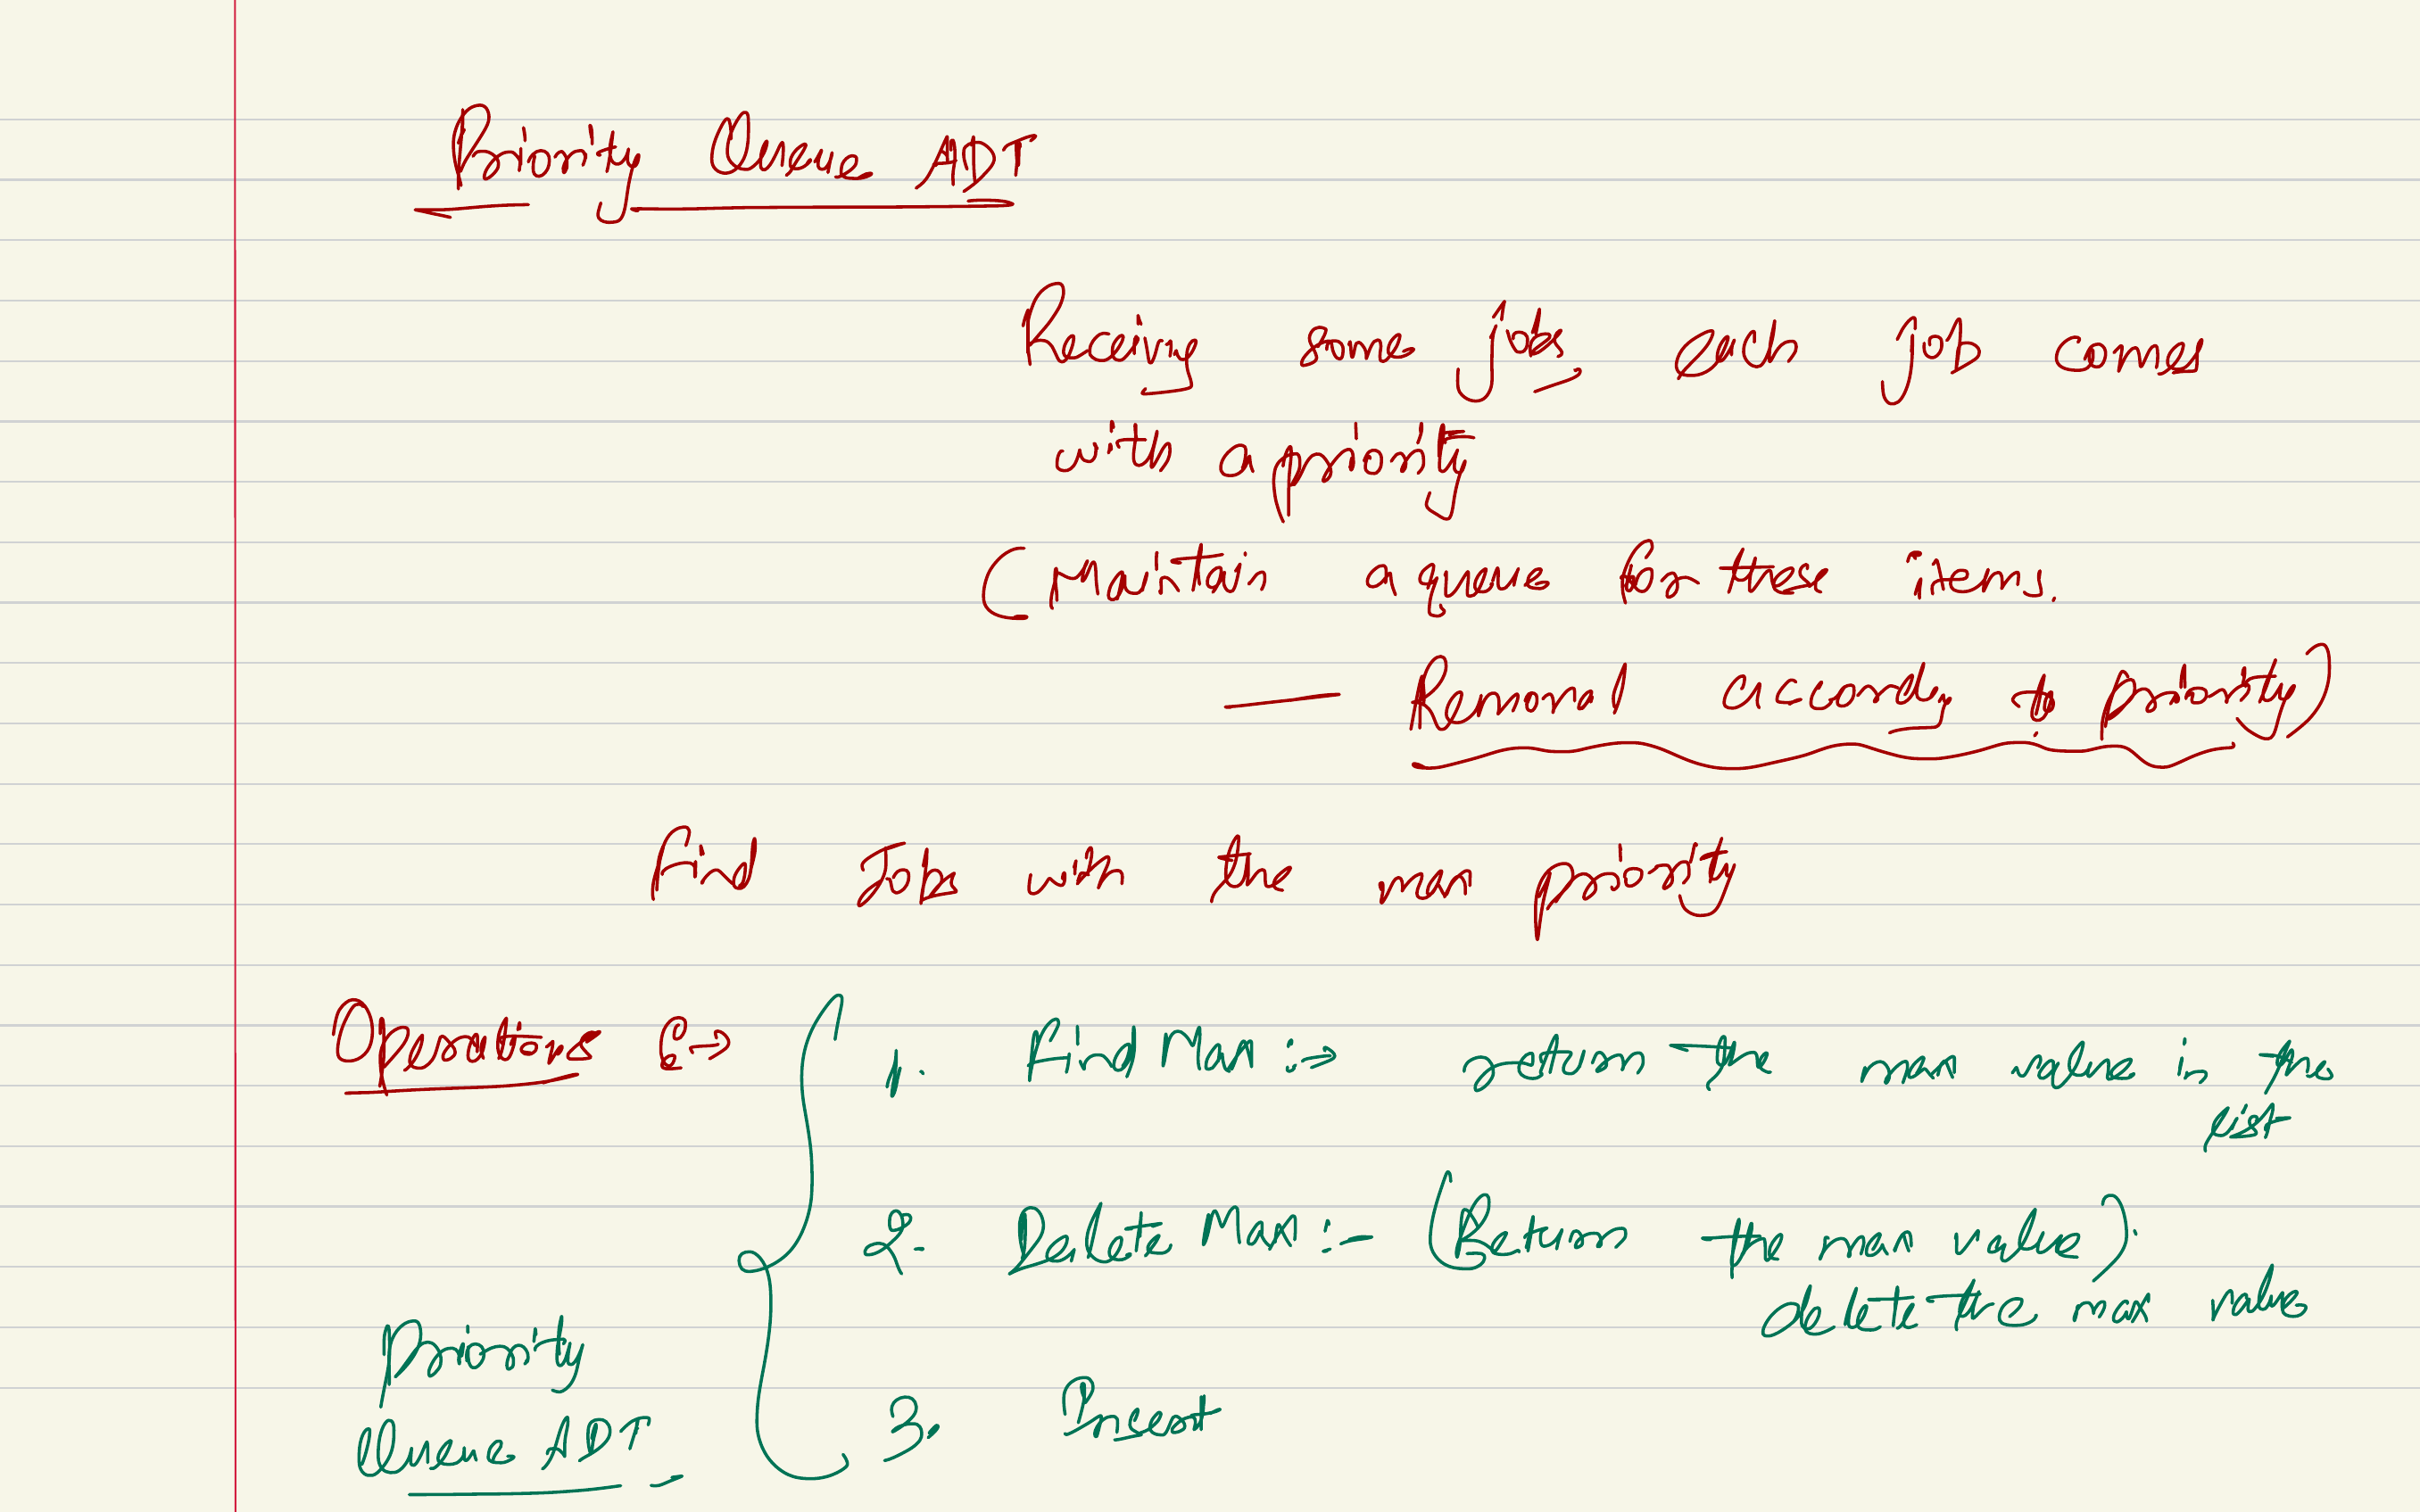 Priority Queue ADT
Receiving some jobs each job comes
with a priority
(Maintain a queue for these items.
— Removal according to priority)
Find Jobs with the max priority
Operations :→
1. Find Max :→ return the max value in the
list
2. Delete Max :- (Return the max value).
delete the max value
3. Insert
Priority
Queue ADT